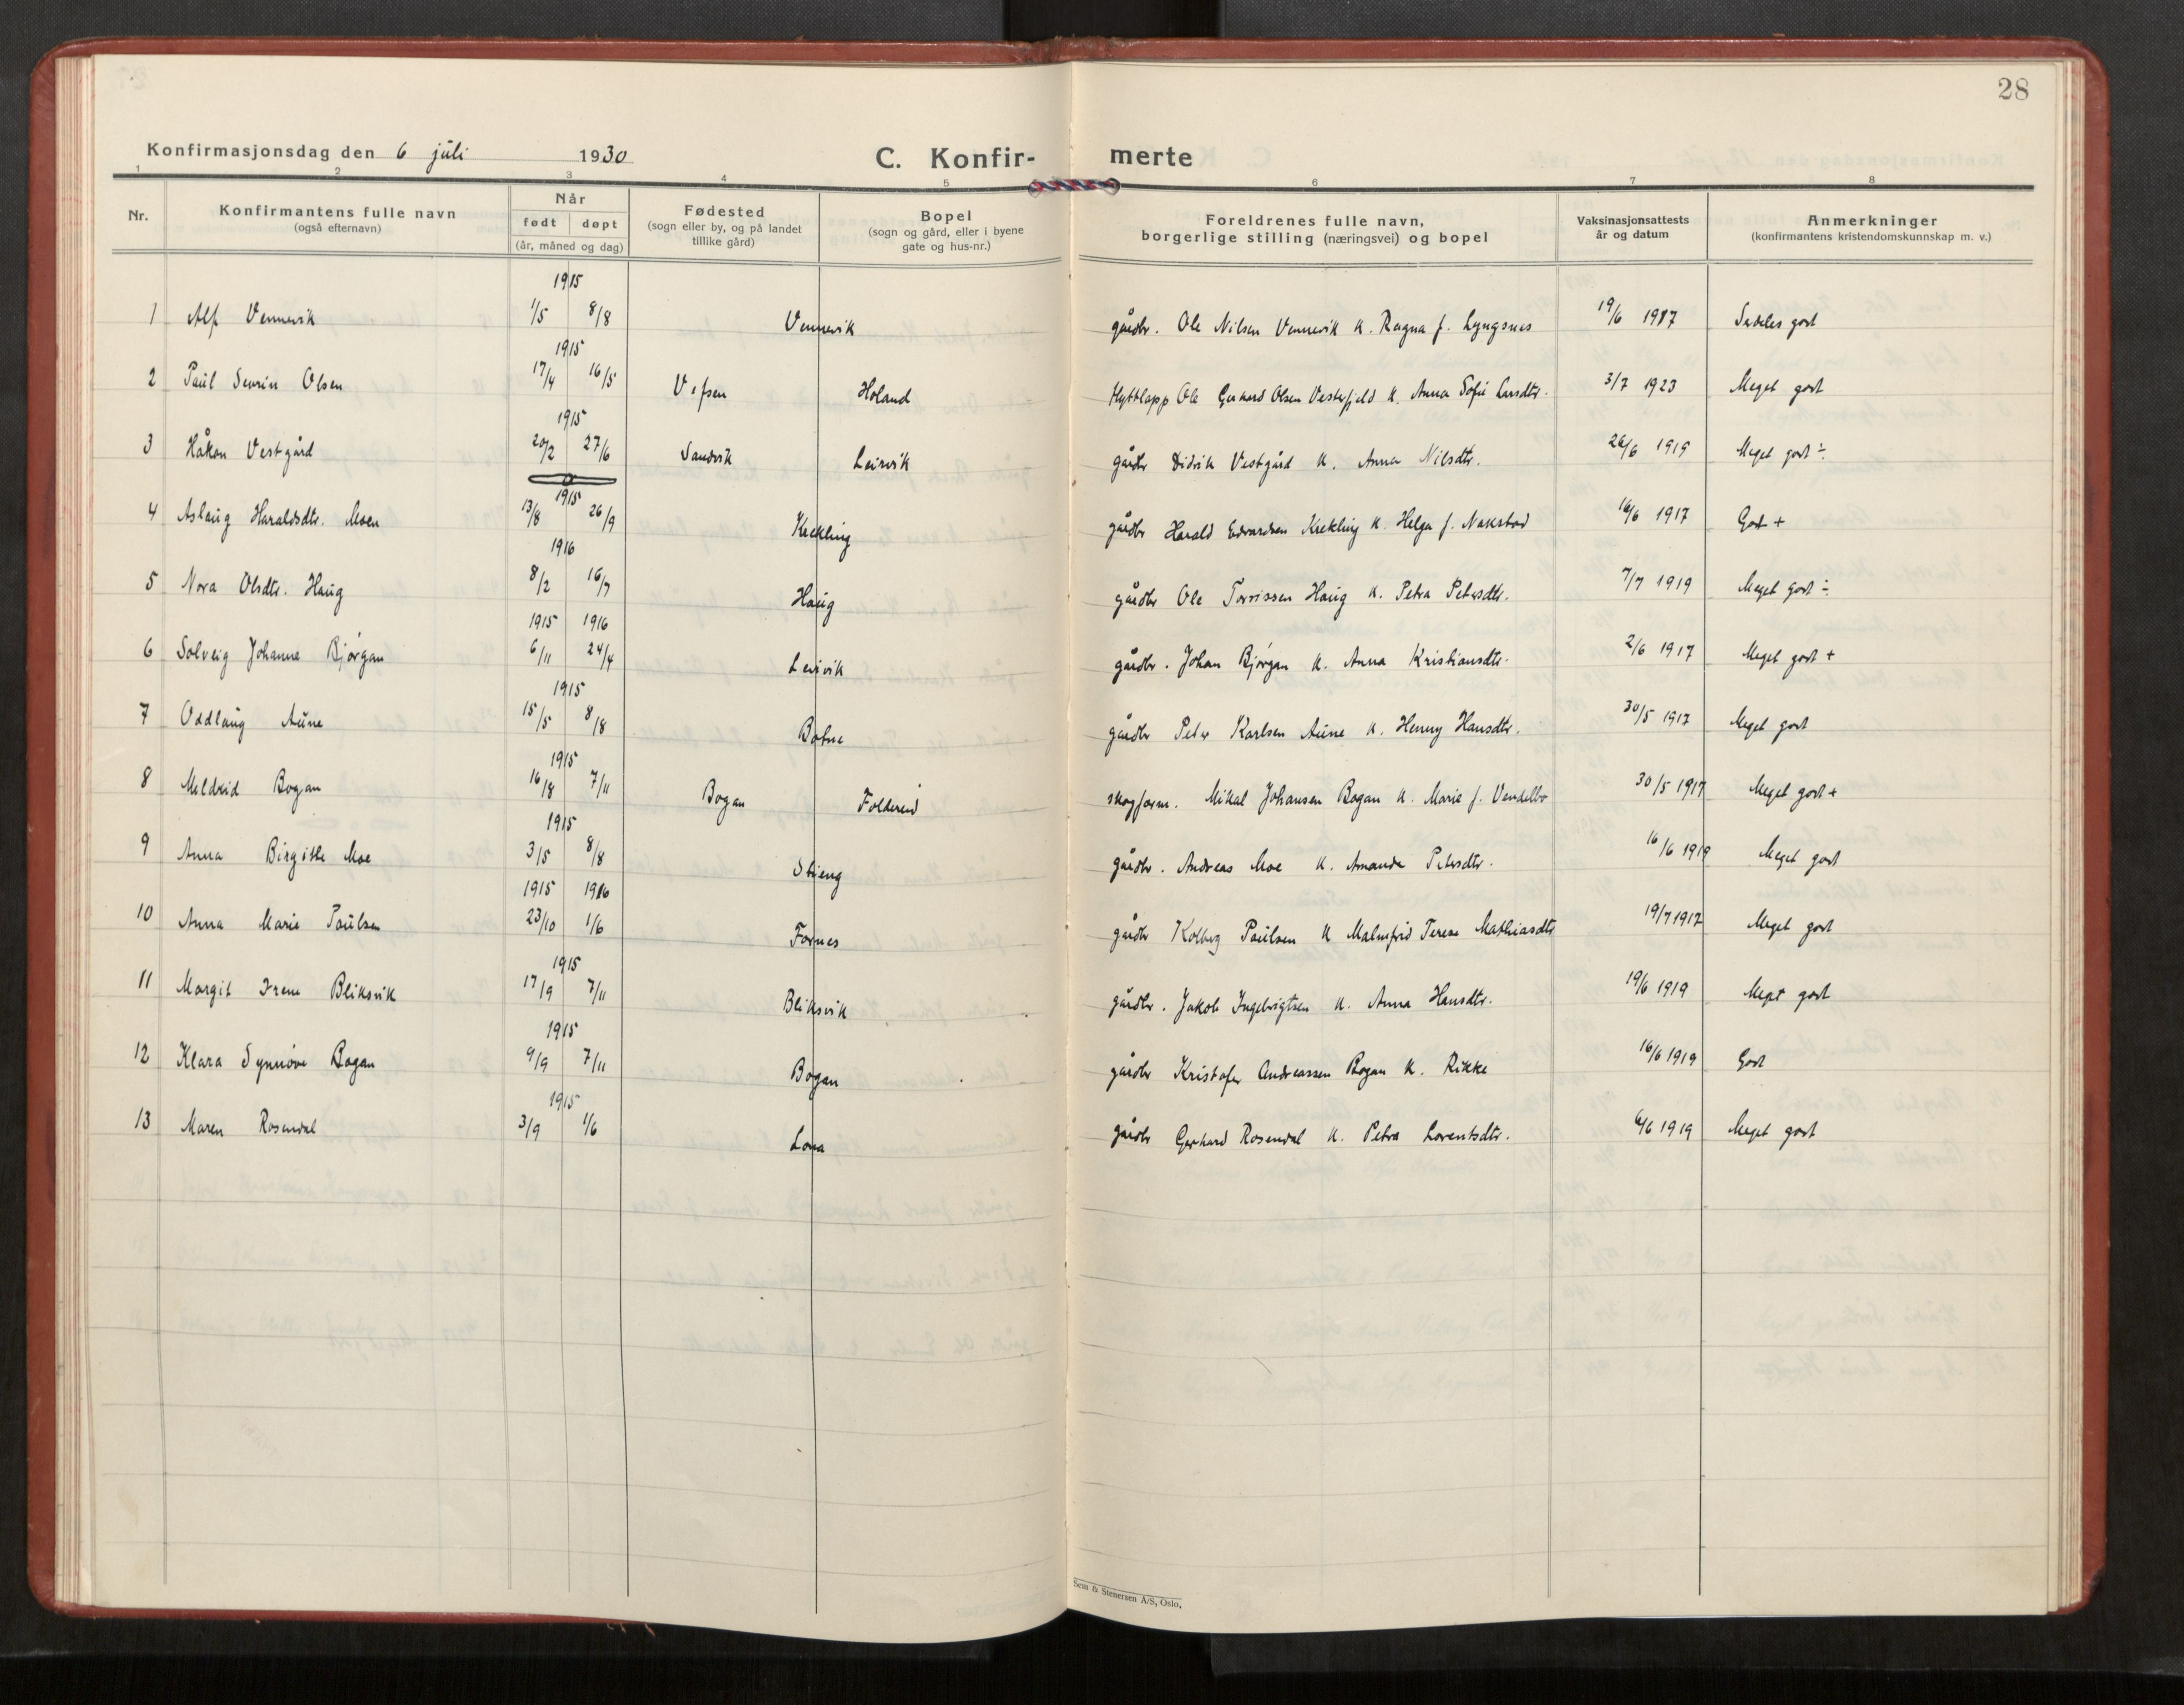 28
Konfirmasjonsdag den 6 juli 1930
C. Konfir- merte
1 2 3 4 5 6 7 8
Nr. Konfirmantens fulle navn (også efternavn) Når født døpt (år, måned og dag) Fødested (sogn eller by, og på landet tillike gård) Bopel (sogn og gård, eller i byene gate og hus-nr.) Foreldrenes fulle navn, borgerlige stilling (næringsvei) og bopel Vaksinasjonsattests år og datum Anmerkninger (konfirmantens kristendomskunnskap m. v.)
1915
1 Alf Vennevik 1/5 8/8 Vennevik gårdbr. Ole Nilsen Vennevik K. Ragna f. Lyngsnes 19/6 1917 Særdeles godt
1915
2 Paul Sevrin Olsen 17/4 16/5 Vefsen Holand Flyttlapp Ole Gerhard Olsen Vestefjeld K. Anna Sofie Larsdtr. 3/7 1923 Meget godt
1915
3 Håkon Vestgård 20/2 27/6 Sandvik Leirvik gårdbr Didrik Vestgård K. Anna Nilsdtr. 26/6 1919 Meget godt ÷
1915
4 Aslaug Haraldsdtr. Moen 13/8 26/9 Krekling gårdbr Harald Edvardsen Krekling K. Helga f. Nakstad 16/6 1917 Godt +
1916
5 Nora Olsdtr. Haug 8/2 16/7 Haug gårdbr Ole Torrissen Haug K. Petra Petersdtr. 7/7 1919 Meget godt ÷
1915 1916
6 Solveig Johanne Bjørgan 6/11 24/4 Leirvik gårdbr. Johan Bjørgan K. Anna Kristiansdtr. 2/6 1917 Meget godt +
1915
7 Oddlaug Aune 15/5 8/8 Botne gårdbr Peter Karlsen Aune K. Henny Hansdtr. 30/5 1917 Meget godt
1915
8 Meldrid Bogan 16/8 7/11 Bogan Foldereid skogform. Mikal Johansen Bogan K. Marie f. Vendelbo 30/5 1917 Meget godt +
1915
9 Anna Birgitte Moe 3/5 8/8 Steieng gårdbr. Andreas Moe K. Amanda Petersdtr. 16/6 1919 Meget godt
1915 1916
10 Anna Marie Paulsen 23/10 1/6 Fornes gårdbr Kolberg Paulsen K Malmfrid Terese Mathiasdtr 19/7 1917 Meget godt
1915
11 Margit Irene Bliksvik 17/9 7/11 Bliksvik gårdbr. Jakob Ingebrigtsen K. Anna Hansdtr. 19/6 1919 Meget godt
1915
12 Klara Synnøve Bogan 9/9 7/11 Bogan gårdbr Kristofer Andreassen Bogan K. Rikke 16/6 1919 Godt
1915
13 Maren Rosendal 3/9 1/6 Lona gårdbr Gerhard Rosendal K. Petra Lorentsdtr. 6/6 1919 Meget godt
Sem & Stenersen A/S, Oslo.